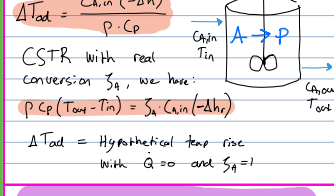 ΔTad = CA,in (-Δh)
ρ · Cp
CA,in
Tin
A → P
CA,out
Tout
CSTR with real
conversion ζA, we have:
ρ Cp (Tout - Tin) = ζA · CA,in (-Δhr)
ΔTad = Hypothetical temp rise
with Q̇ = 0 and ζA = 1